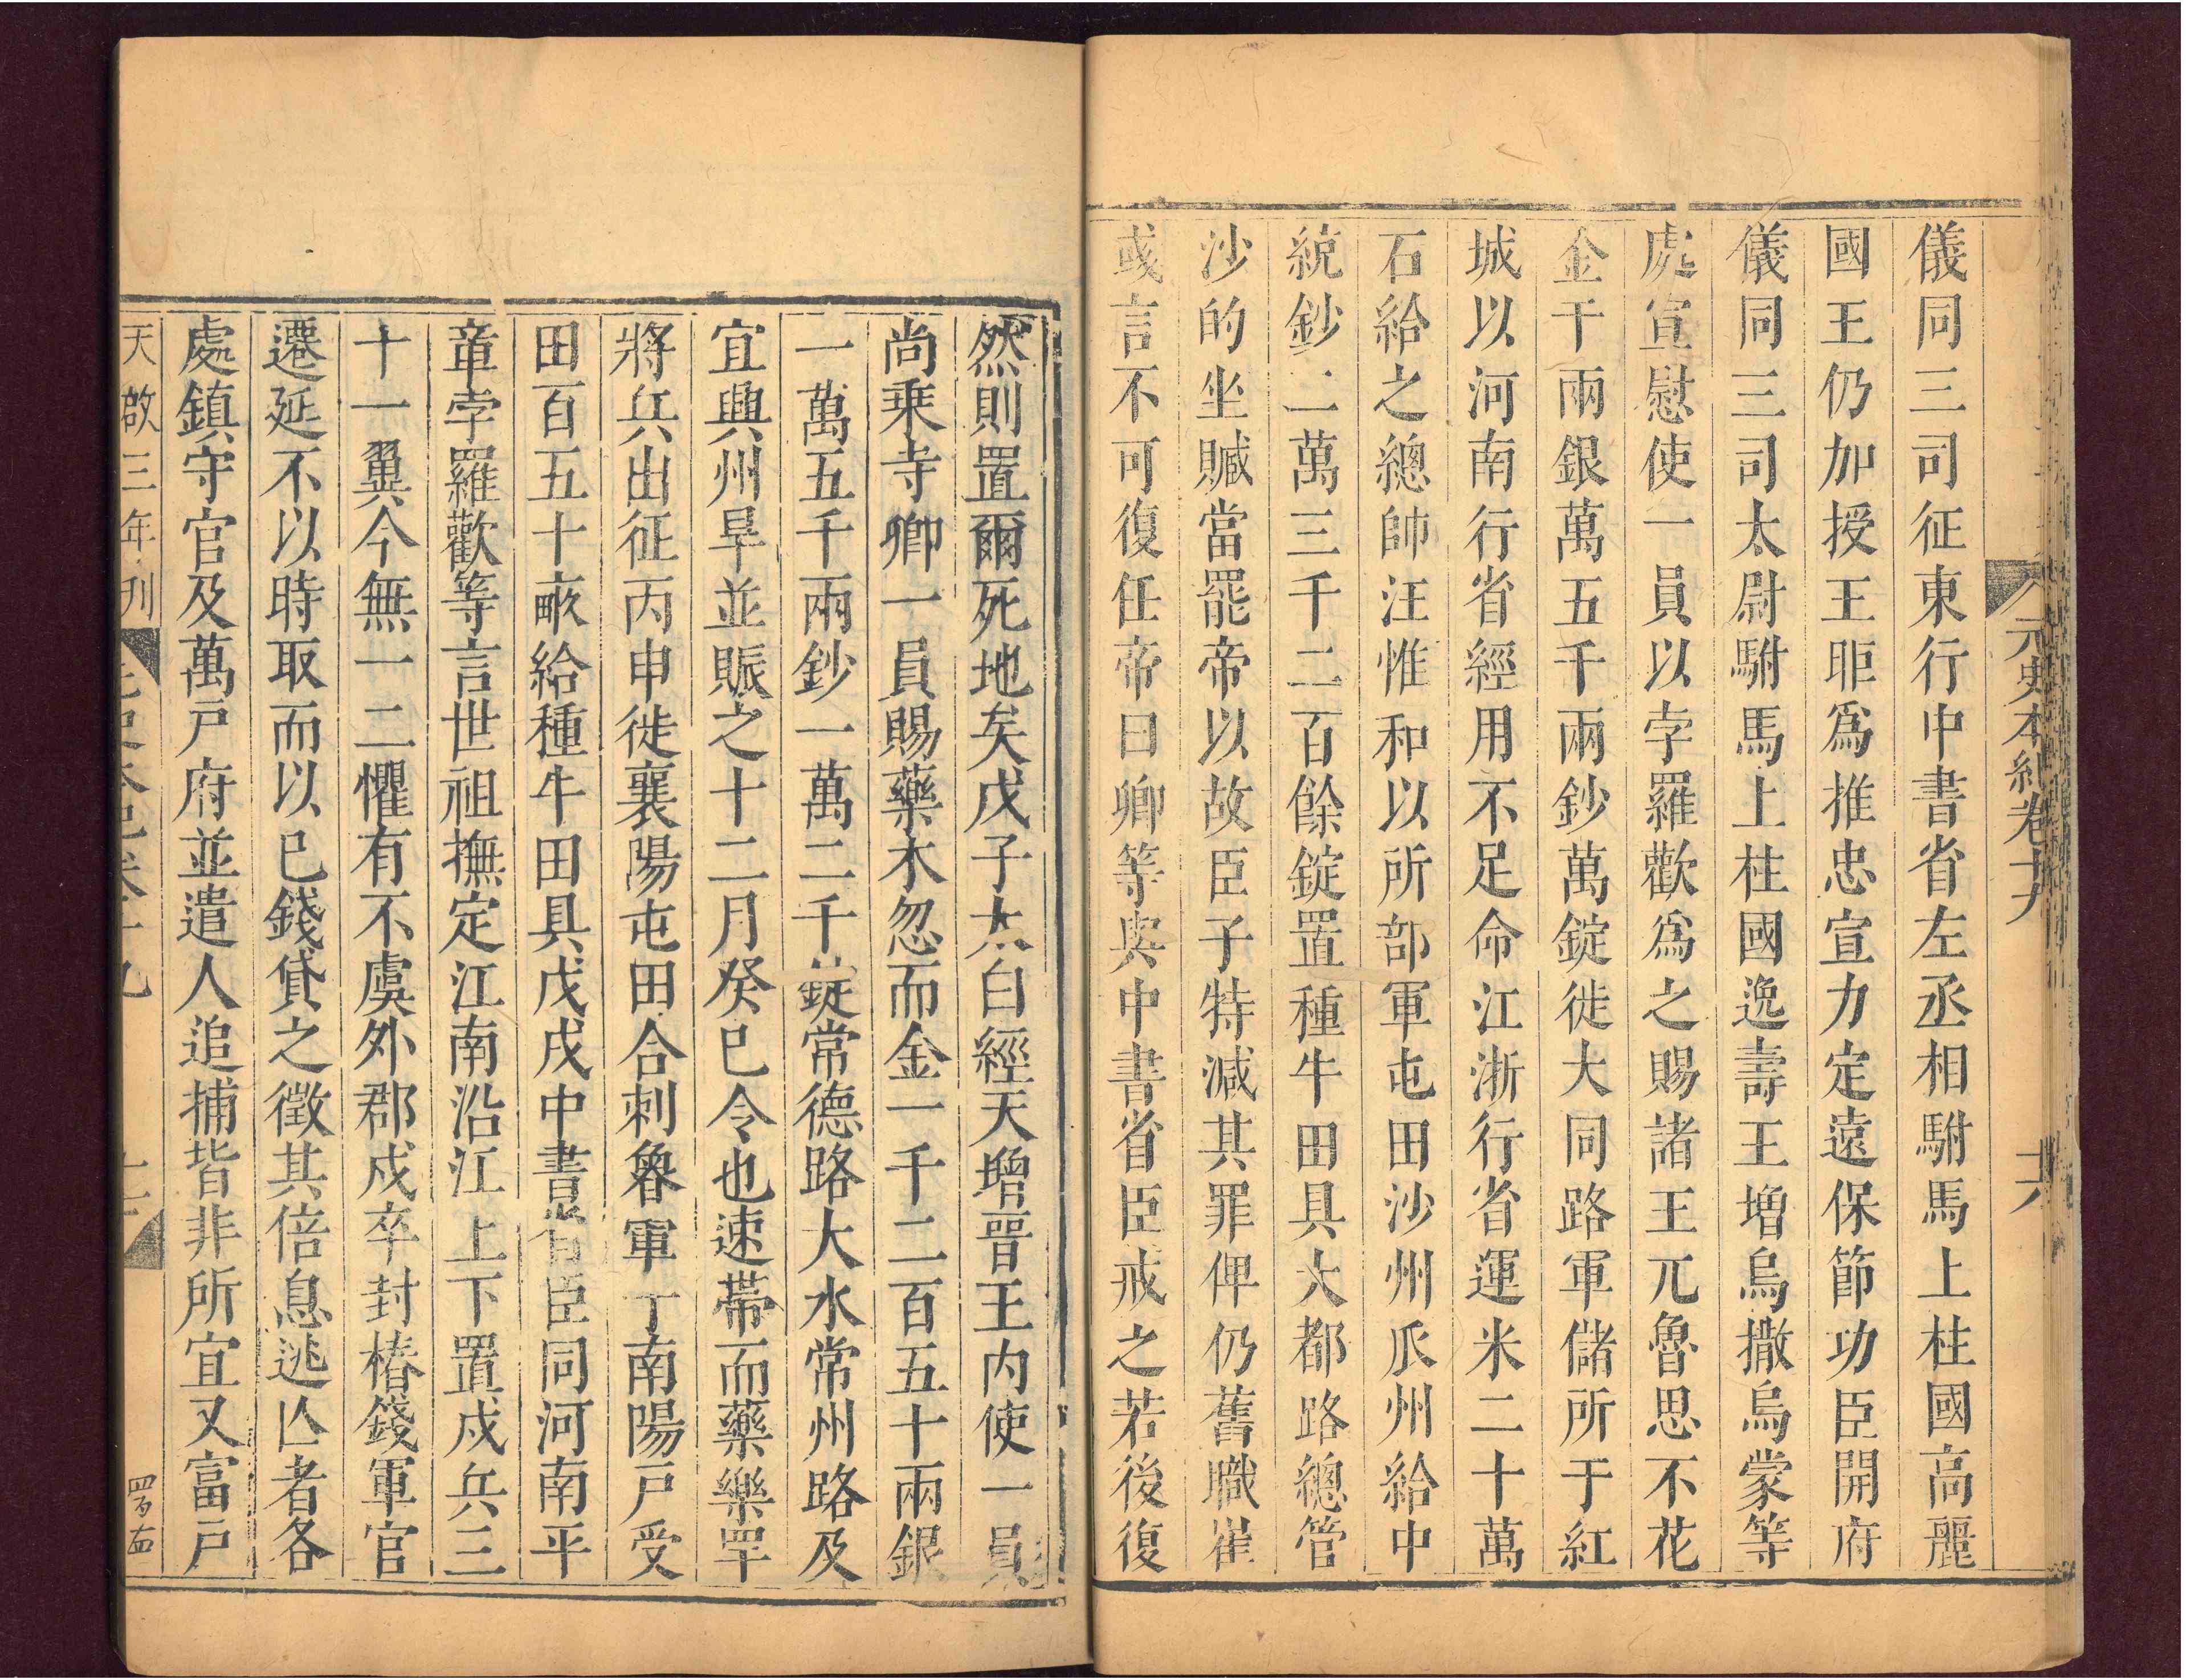 元史本紀卷十九
十六
儀同三司征東行中書省左丞相駙馬上柱國高麗
國王仍加授王昛爲推忠宣力定遠保節功臣開府
儀同三司太尉駙馬上柱國逸壽王增烏撒烏蒙等
處宣慰使一員以孛羅歡爲之賜諸王兀魯思不花
金千兩銀萬五千兩鈔萬錠徙大同路軍儲所于紅
城以河南行省經用不足命江浙行省運米二十萬
石給之總帥汪惟和以所部軍屯田沙州瓜州給中
統鈔二萬三千二百餘錠置種牛田具大都路總管
沙的坐贓當罷帝以故臣子特減其罪俾仍舊職崔
彧言不可復任帝曰卿等與中書省臣戒之若後復
然則置爾死地矣戊子太白經天增晉王内使一員
尚乗寺卿一員賜藥木忽而金一千二百五十兩銀
一萬五千兩鈔一萬二千錠常德路大水常州路及
宜興州旱並賑之十二月癸巳令也速帶而藥樂罕
將兵出征丙申徙襄陽屯田合刺魯軍丁南陽戸受
田百五十畝給種牛田具戊戌中書省臣同河南平
章孛羅歡等言世祖撫定江南沿江上下置戍兵三
十一翼今無一二懼有不虞外郡戍卒封樁錢軍官
遷延不以時取而以已錢貸之徵其倍息逃亾者各
處鎮守官及萬戸府並遣人追捕皆非所宜又富戸
天啟三年刊
元史本紀卷十九